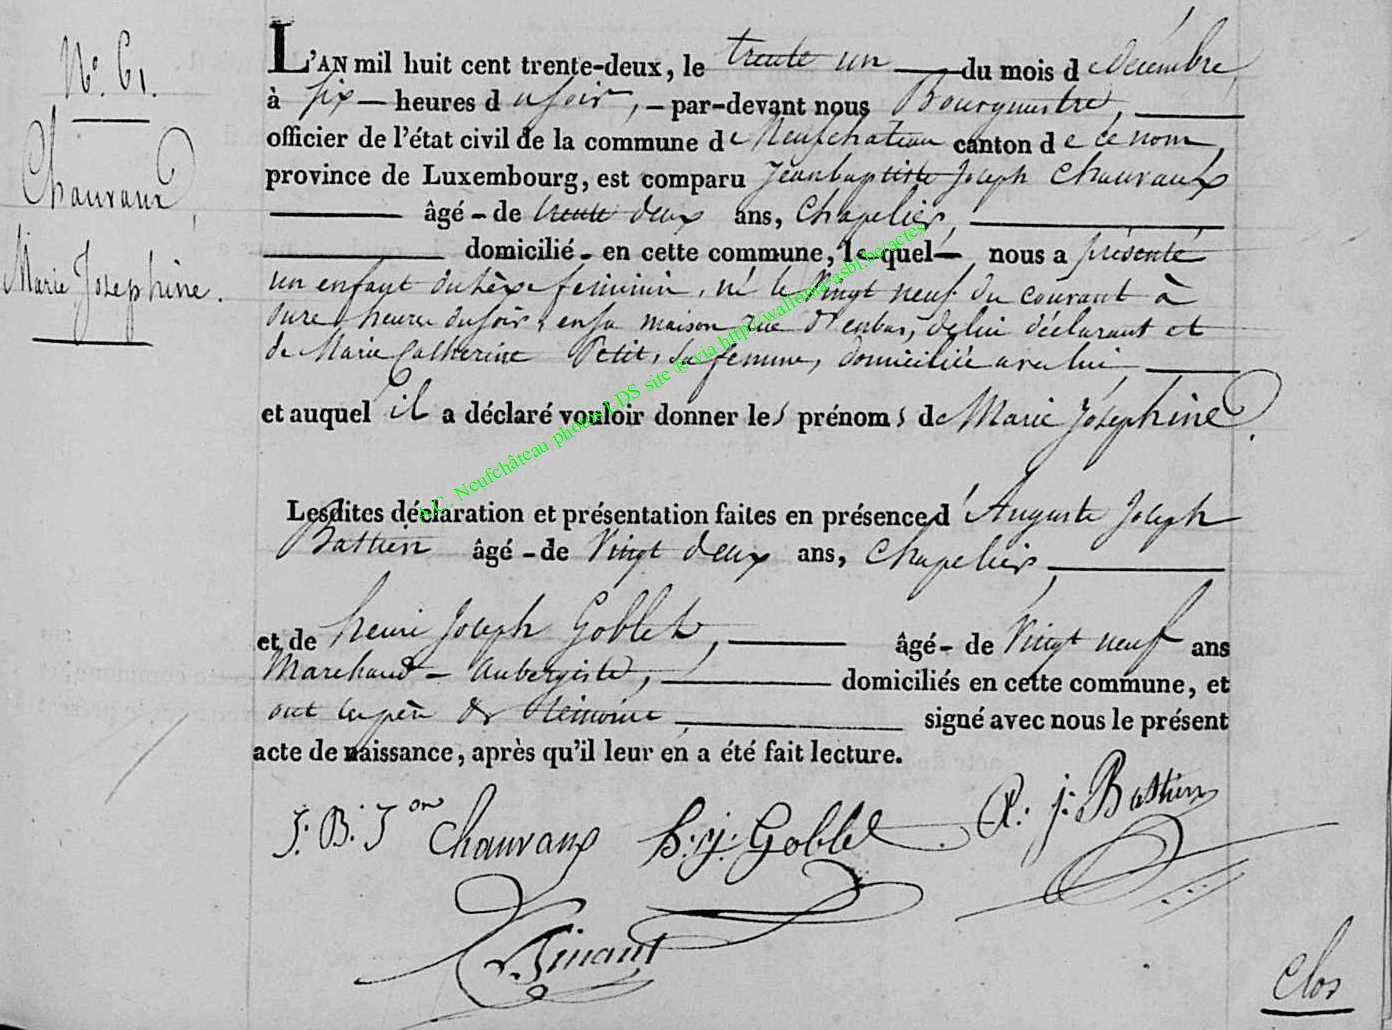 N.° 61.
Chauvaux,
Marie Josephine.
L'AN mil huit cent trente-deux, le trente un du mois de Décembre,
à six heures du soir, par-devant nous Bourgmestre,
officier de l'état civil de la commune de Neufchateau canton de ce nom,
province de Luxembourg, est comparu Jean baptiste Joseph Chauvaux
âgé de trente deux ans, Chapelier,
domicilié en cette commune, lequel nous a présenté
un enfant du sèxe feminin, né le Vingt neuf du courant à
onze heures du soir, en sa maison rue d'enbas, de lui déclarant et
de Marie Catherine Petit, sa femme, domiciliée avec lui
et auquel il a déclaré vouloir donner les prénoms de Marie Josephine.
Lesdites déclaration et présentation faites en présence d'Auguste Joseph
Bastien âgé de Vingt deux ans, Chapelier,
et de henri Joseph Goblet, âgé de Vingt neuf ans
Marchand - Aubergiste, domiciliés en cette commune, et
ont les père et témoins signé avec nous le présent
acte de naissance, après qu'il leur en a été fait lecture.
J. B. J on Chauvaux h. j. Goblet A. j. Bastien
Clos
A.C. Neufchâteau photos LDS site @ via http://wallonia-asbl.be/actes